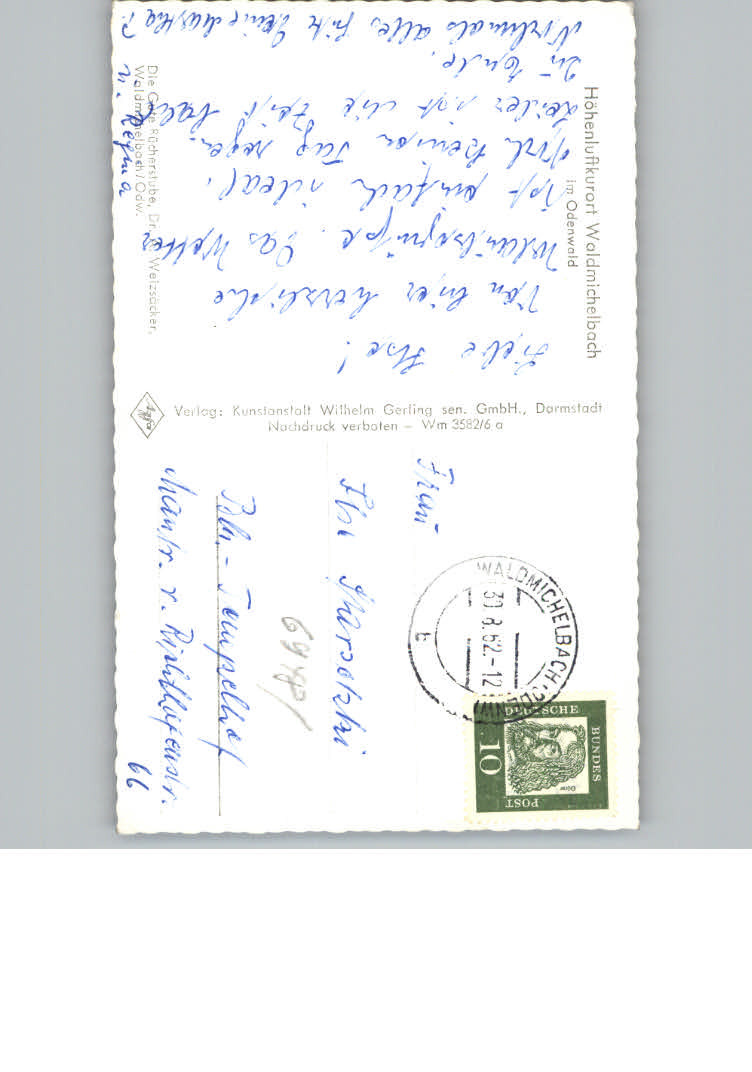 Höhenluftkurort Waldmichelbach
im Odenwald
Liebe Ilse!
Von hier herzliche
Urlaubsgrüße. Das Wetter
ist einfach ideal.
Noch keinen Tag Regen.
Leider ist die Zeit bald
zu Ende.
Nochmals alles
Regina
Die Gute Bücherstube, Dr. Weizsäcker,
Waldmichelbach/Odw.
Agfa
Verlag: Kunstanstalt Wilhelm Gerling sen. GmbH., Darmstadt
Nachdruck verboten – Wm 3582/6 a
WALDMICHELBACH
30.8.62.-12
b
DEUTSCHE
BUNDES
POST
10
Dürer
Ilse
Bln.-Tempelhof
66